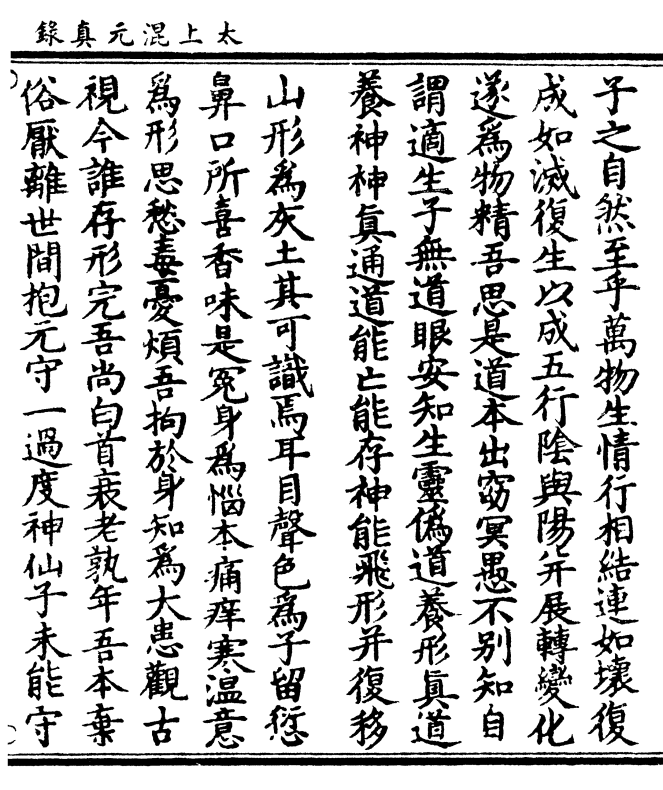 太上混元真錄
子之自然至乎萬物生情行相結連如壞復
成如滅復生以成五行陰與陽并展轉變化
遂為物精吾思是道本出窈冥愚不別知自
謂適生子無道眼安知生靈偽道養形真道
養神神真通道能亡能存神能飛形并復移
山形為灰土其可識焉耳目聲色為子留愆
鼻口所喜香味是冤身為惱本痛痒寒溫意
為形思愁毒憂煩吾拘於身知為大患觀古
視今誰存形完吾尚白首衰老孰年吾本棄
俗厭離世間抱元守一過度神仙子未能守